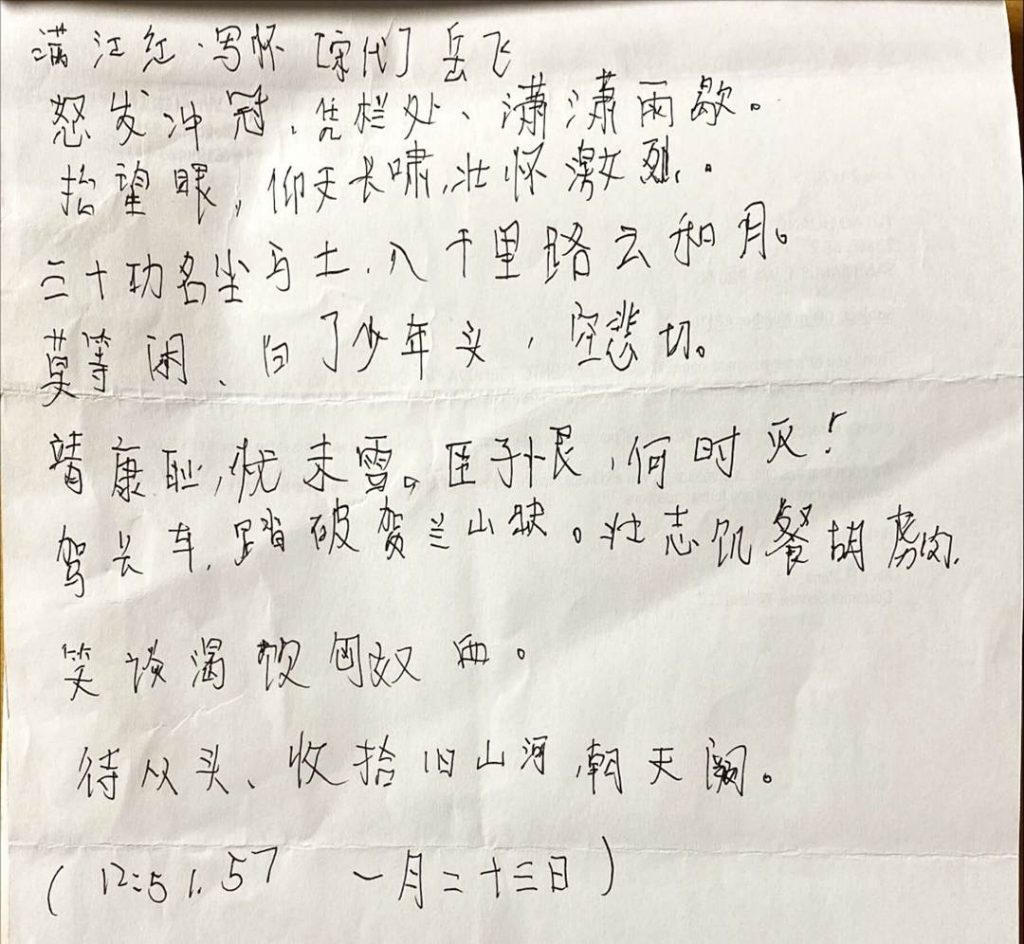 满江红·写怀 [宋代] 岳飞
怒发冲冠，凭栏处、潇潇雨歇。
抬望眼，仰天长啸，壮怀激烈。
三十功名尘与土，八千里路云和月。
莫等闲、白了少年头，空悲切。
靖康耻，犹未雪。臣子恨，何时灭！
驾长车，踏破贺兰山缺。壮志饥餐胡虏肉，
笑谈渴饮匈奴血。
待从头、收拾旧山河，朝天阙。
(12:51.57 一月二十三日)